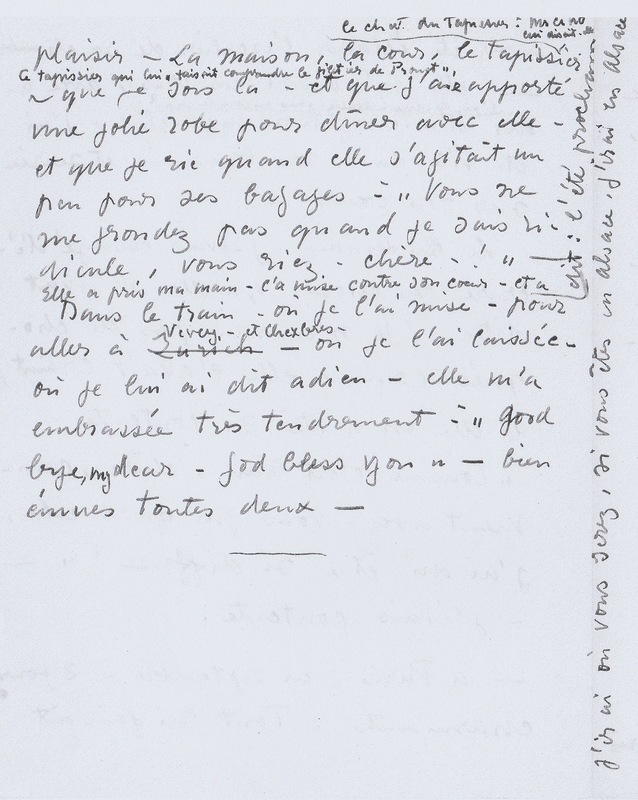 le chat du Tapissier :
lui disait-elle
plaisir — La maison, la cour, le tapissier
ce tapissier qui lui "faisait comprendre le métier de Proust",
que je sois là - et que j'aie apporté
une jolie robe pour dîner avec elle -
et que je rie quand elle s'agitait un
peu pour ses bagages - : " Vous ne
me grondez pas quand je suis ri-
dicule, vous riez - chère - ! "
Elle a pris ma main - l'a mise contre son cœur - et a
dit : l'été prochain
j'irai où vous serez, si vous êtes en Alsace, j'irai en Alsace
Dans le train - où je l'ai mise - pour
Vevey - et Chexbres -
aller à Zurich — où je l'ai laissée -
où je lui ai dit adieu - elle m'a
embrassée très tendrement - : " Good
bye, my dear - God bless you " — bien
émues toutes deux —